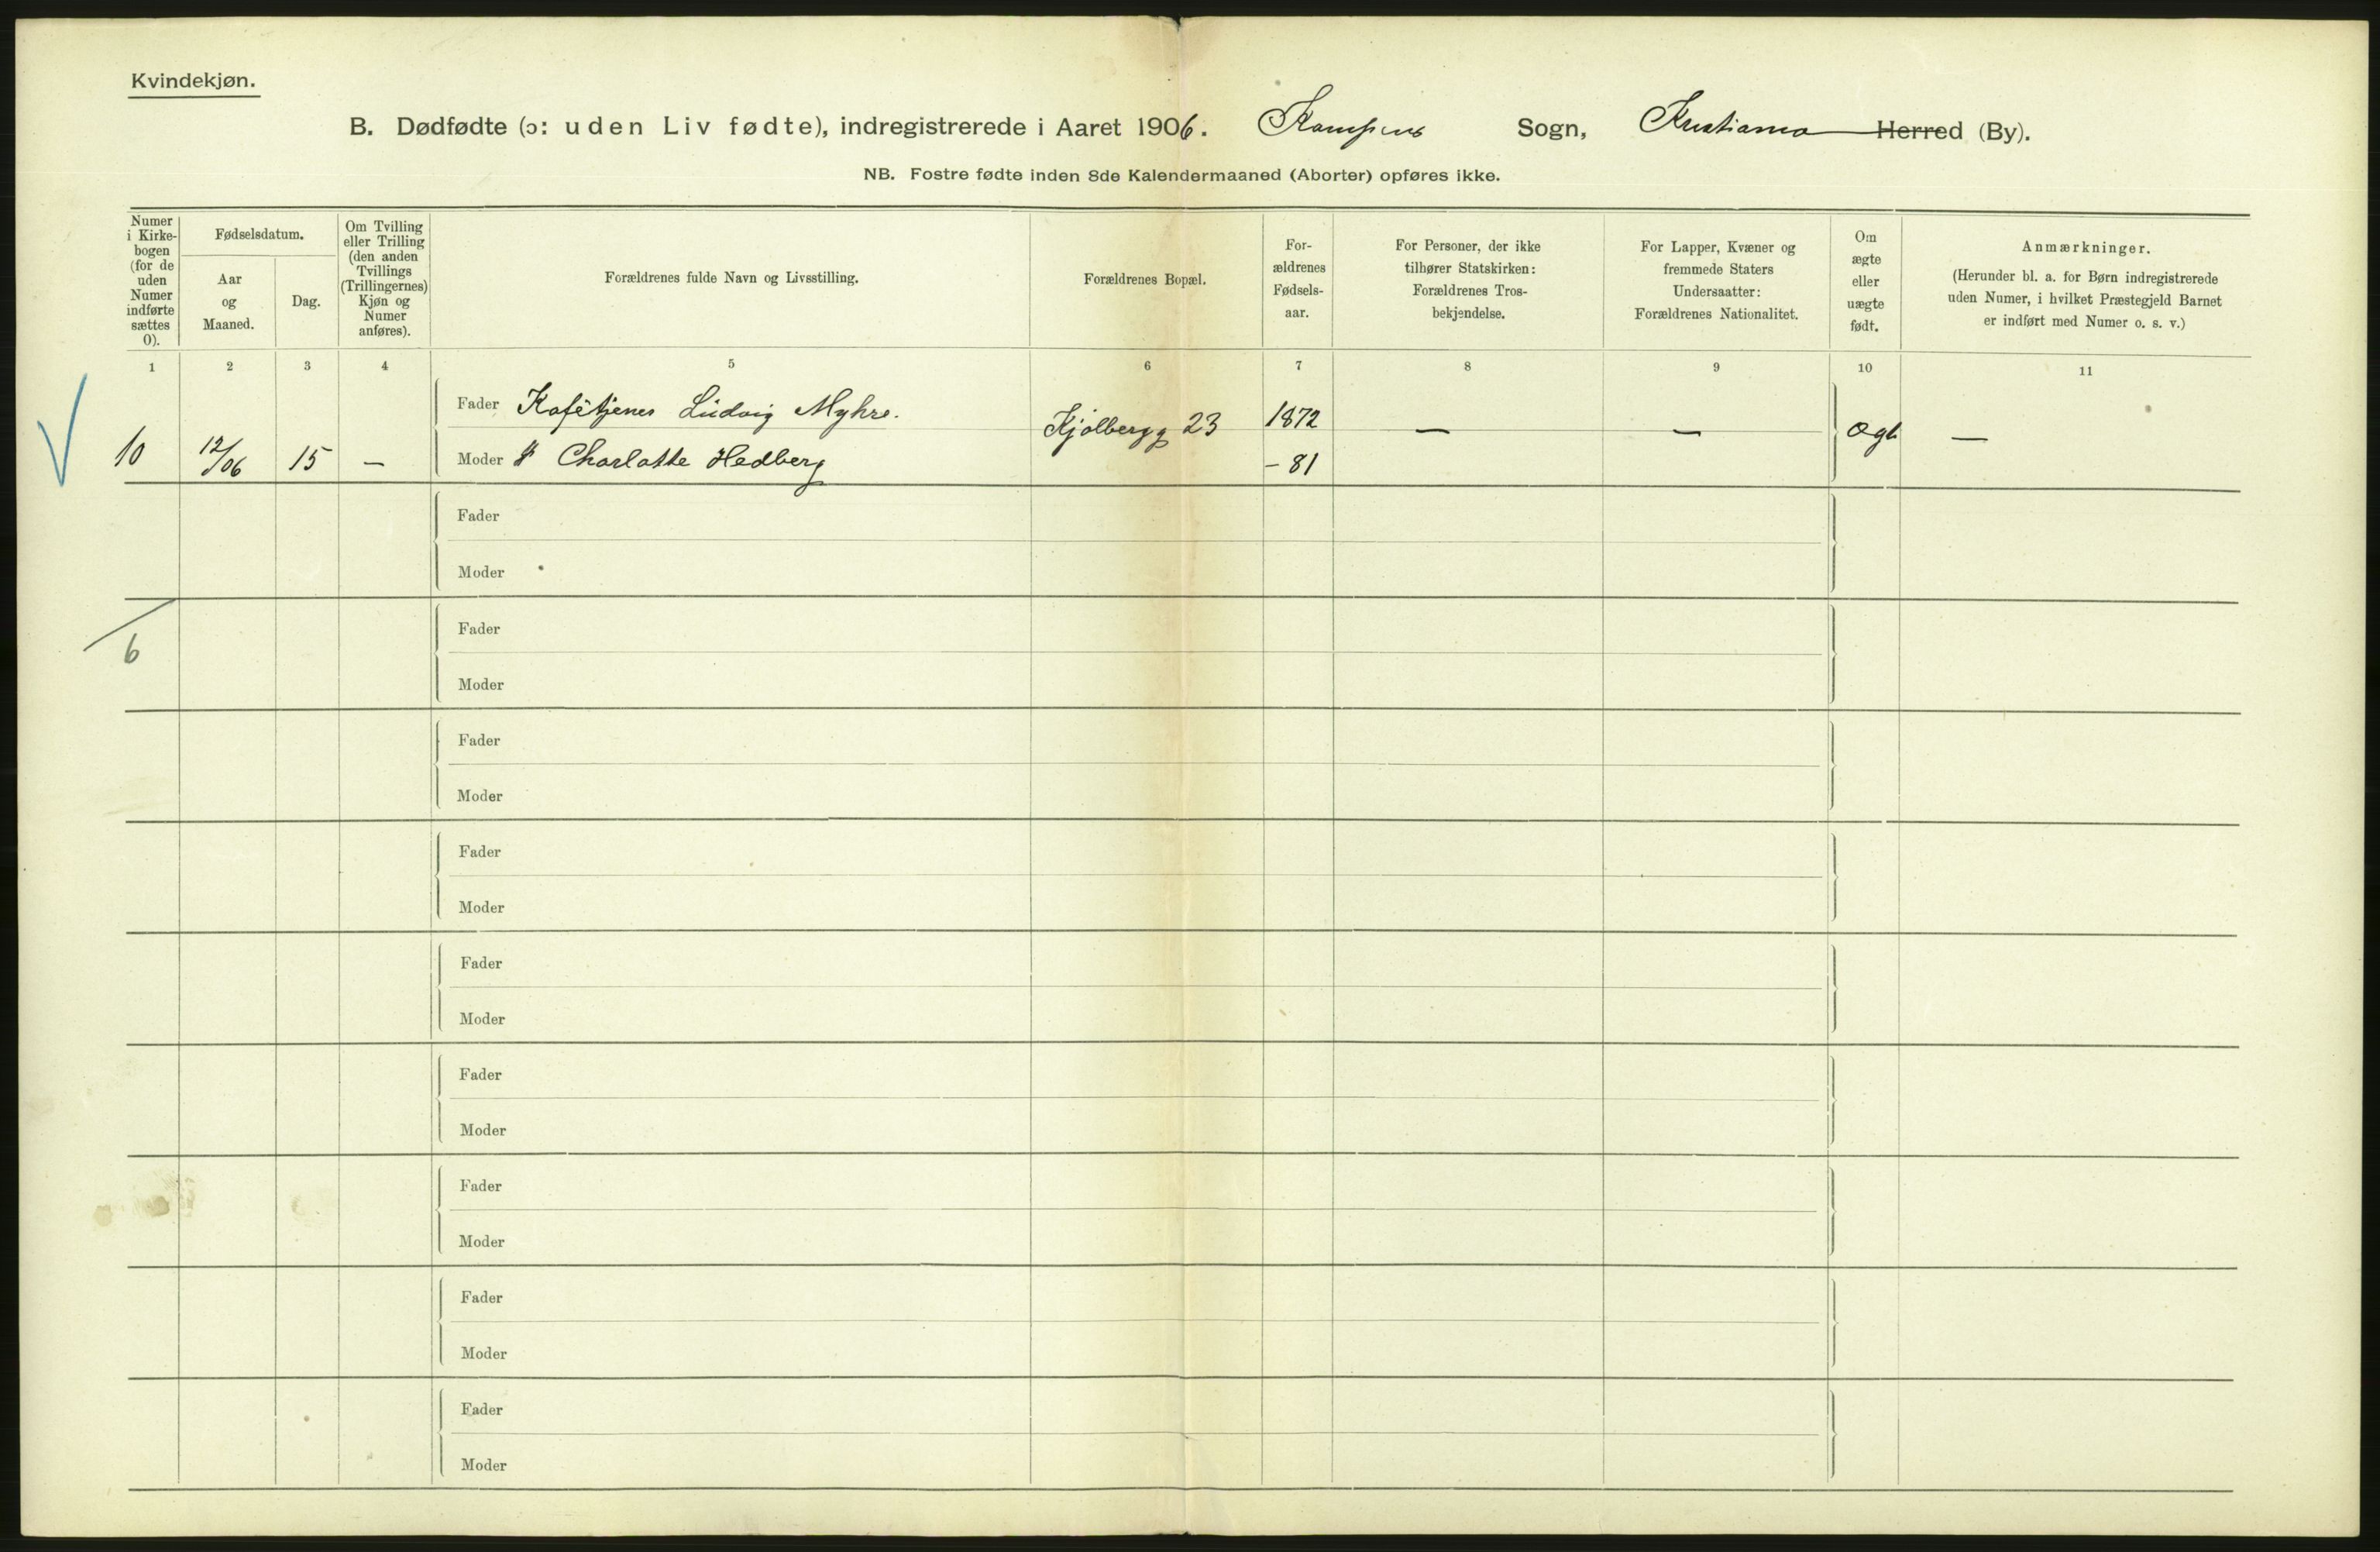 Kvindekjøn.
B. Dødfødte (ɔ: uden Liv fødte), indregistrerede i Aaret 1906. Kampens Sogn, Kristiania Herred (By).
NB. Fostre fødte inden 8de Kalendermaaned (Aborter) opføres ikke.
Numer
i Kirke-
bogen
(for de
uden
Numer
indførte
sættes
0).
Fødselsdatum.
Aar
og
Maaned.
Dag.
Om Tvilling
eller Trilling
(den anden
Tvillings
(Trillingernes)
Kjøn og
Numer
anføres).
Forældrenes fulde Navn og Livsstilling.
Forældrenes Bopæl.
For-
ældrenes
Fødsels-
aar.
For Personer, der ikke
tilhører Statskirken:
Forældrenes Tros-
bekjendelse.
For Lapper, Kvæner og
fremmede Staters
Undersaatter:
Forældrenes Nationalitet.
Om
ægte
eller
uægte
født.
Anmærkninger.
(Herunder bl. a. for Børn indregistrerede
uden Numer, i hvilket Præstegjeld Barnet
er indført med Numer o. s. v.)
1 2 3 4 5 6 7 8 9 10 11
Fader Kafétjener Ludvig Myhre. Kjølbergg 23 1872 — — Ægte —
10 12/06 15 — Moder Charlotte Hedberg - 81
Fader
Moder
6
Fader
Moder
Fader
Moder
Fader
Moder
Fader
Moder
Fader
Moder
Fader
Moder
Fader
Moder
Fader
Moder